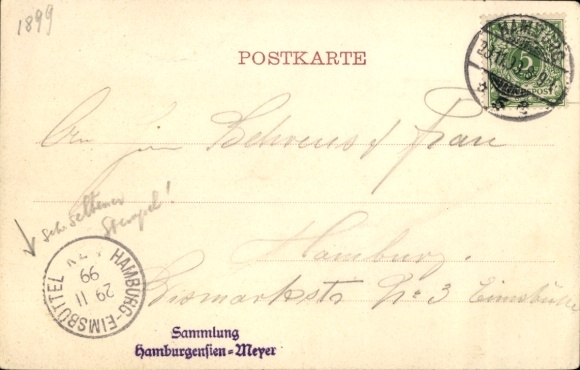 1899
POSTKARTE
HAMBURG
5
REICHSPOST
Frau
Hamburg.
Bismarckstr. No 3 Eimsbüttel
sehr seltener
Stempel!
HAMBURG-EIMSBÜTTEL
29 11
99
Sammlung
Hamburgensien=Meyer